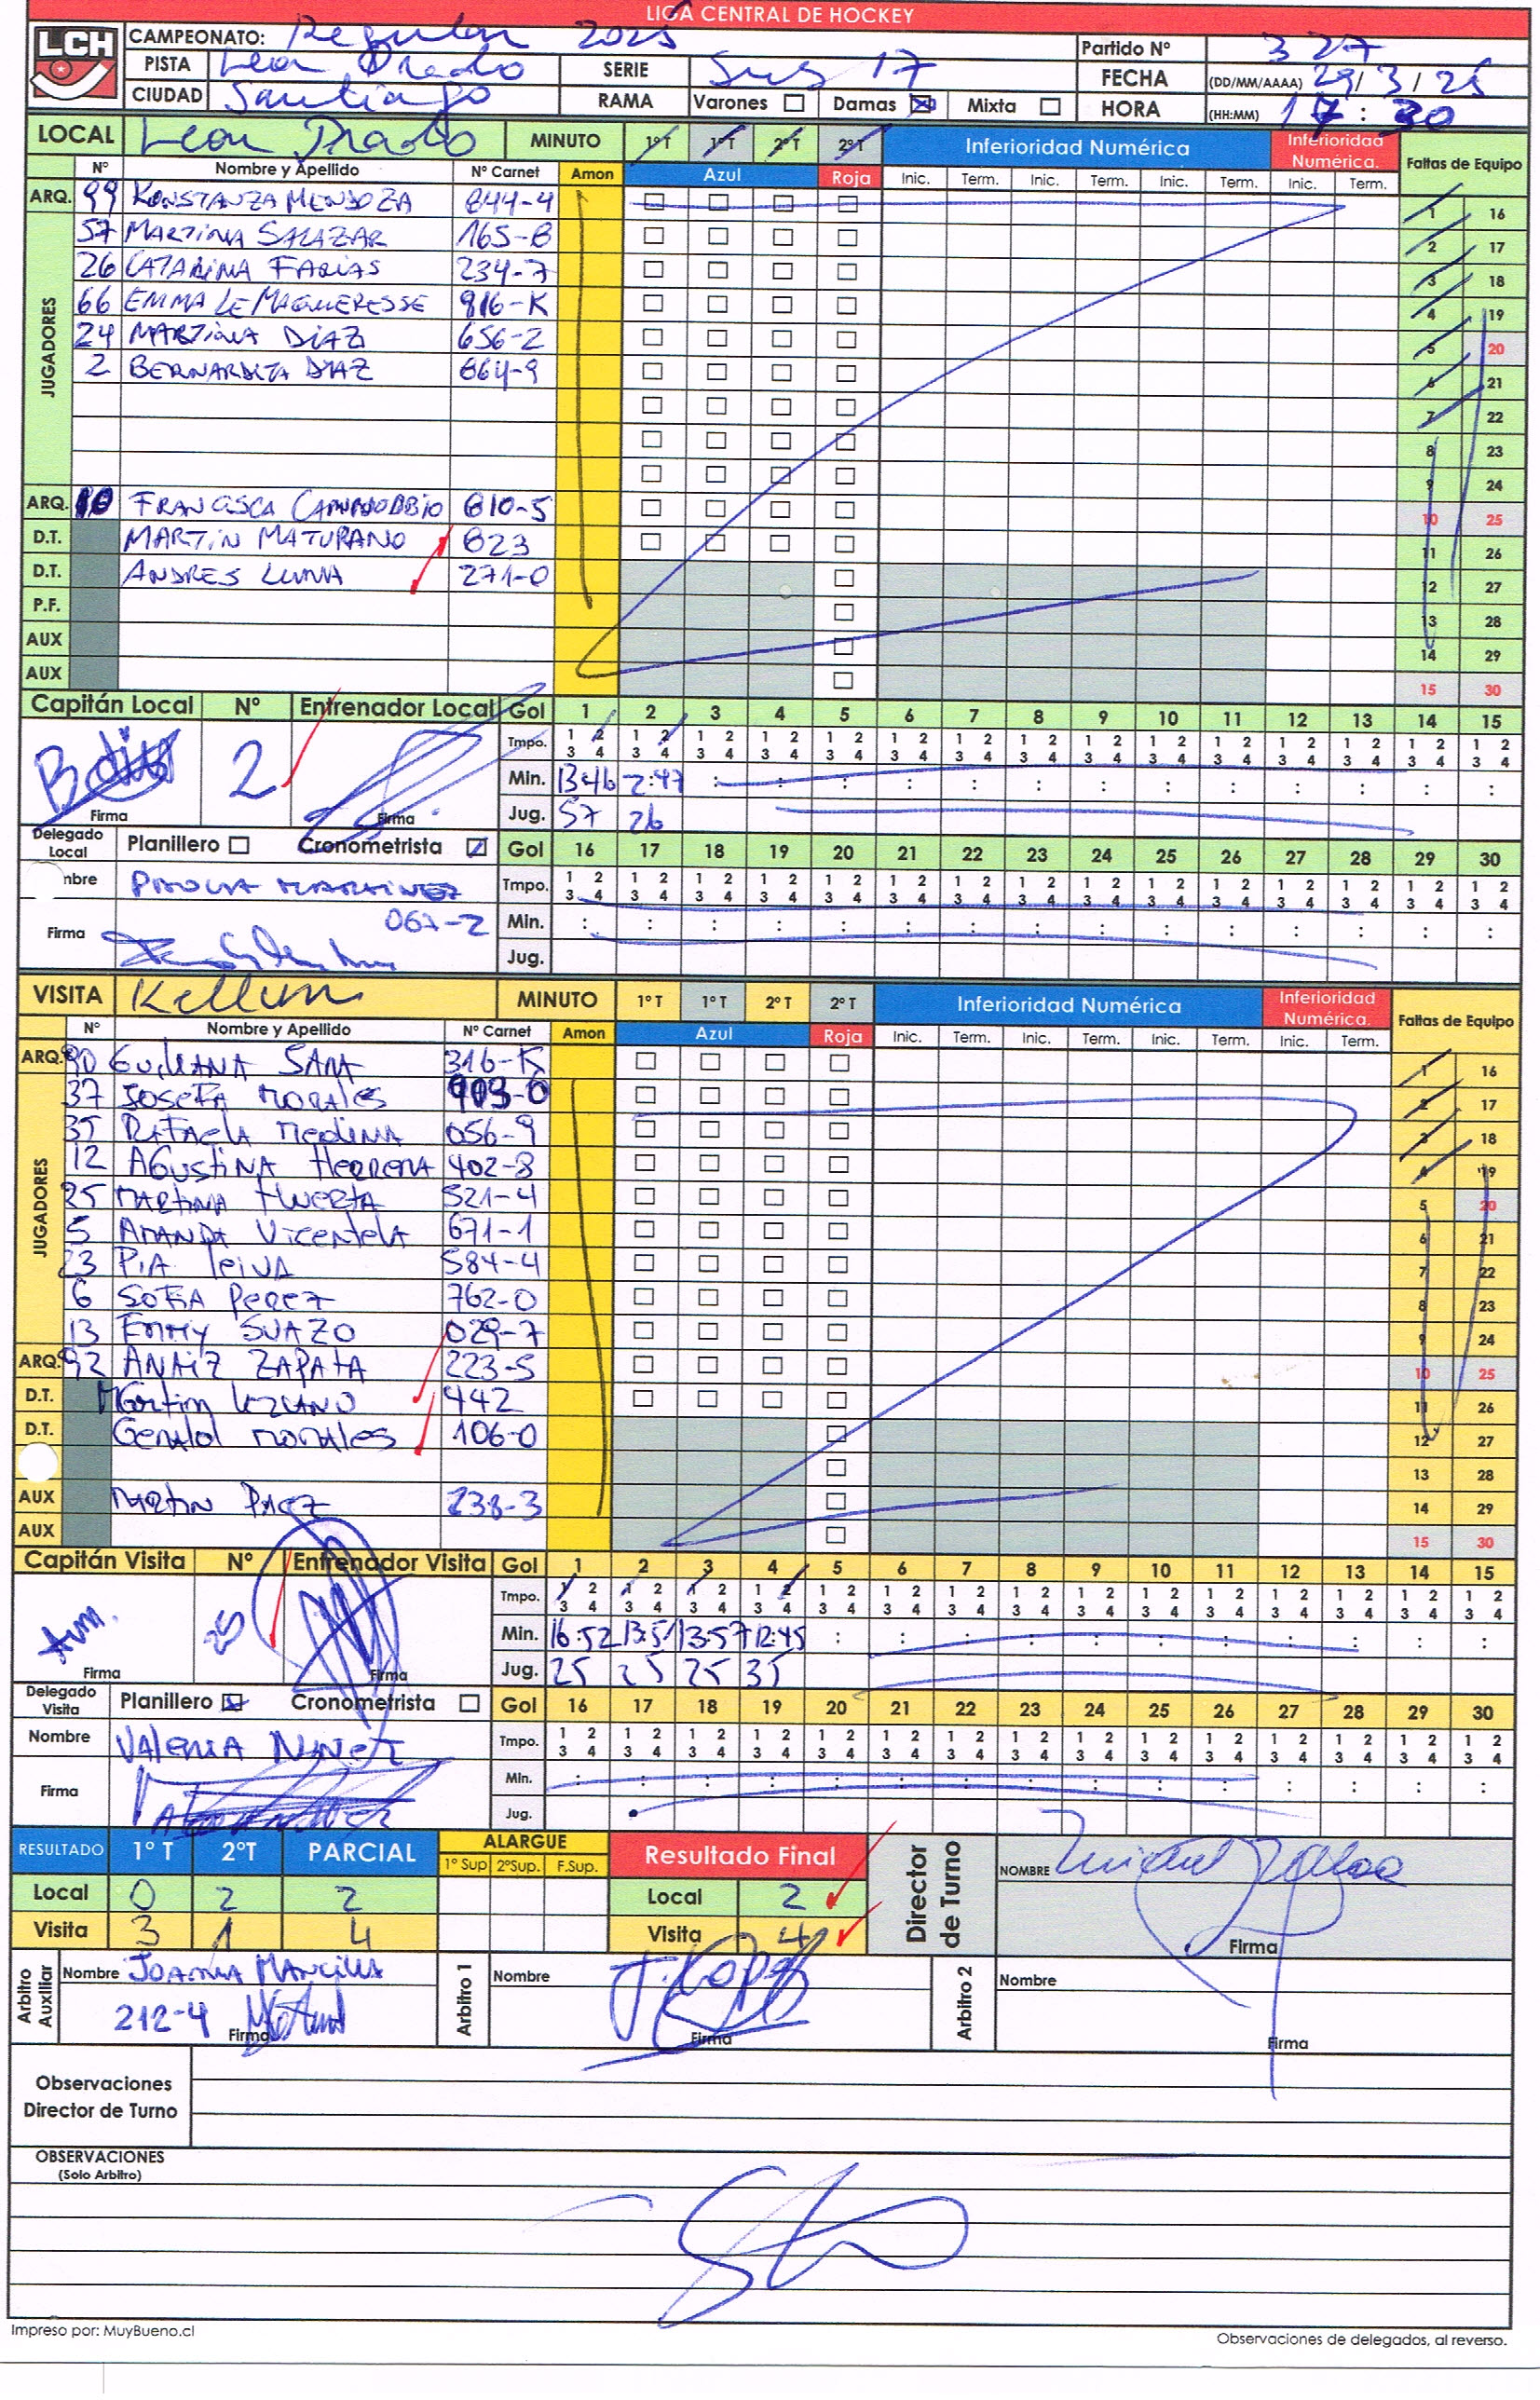 LIGA CENTRAL DE HOCKEY
LCH
CAMPEONATO: Regular 2025
Partido Nº 327
PISTA Leon Prado SERIE Sub 17
FECHA (DD/MM/AAAA) 29/3/25
CIUDAD Santiago RAMA Varones Damas Mixta
HORA (HH:MM) 17:30
LOCAL Leon Prado MINUTO 1º T 1º T 2º T 2º T Inferioridad Numérica Inferioridad Numérica. Faltas de Equipo
Nº Nombre y Apellido Nº Carnet Amon Azul Roja Inic. Term. Inic. Term. Inic. Term. Inic. Term.
JUGADORES
ARQ. 99 KONSTANZA MENDOZA 844-4 1 16
57 MARTINA SALAZAR 165-8 2 17
26 CATARINA FARIAS 234-7 3 18
66 EMMA LE MAGUERESSE 916-K 4 19
24 MARTINA DIAZ 656-2 5 20
2 BERNARDITA DIAZ 664-9 6 21
7 22
8 23
9 24
ARQ. 10 FRANCISCA 810-5 10 25
D.T. MARTIN MATURANO 823 11 26
D.T. ANDRES LUNA 271-0 12 27
P.F. 13 28
AUX 14 29
AUX 15 30
Capitán Local Nº Entrenador Local Gol 1 2 3 4 5 6 7 8 9 10 11 12 13 14 15
2 Tmpo. 1 2 3 4
Min. 13:46 2:47
Firma Firma Jug. 57 26
Delegado Local Planillero Cronometrista Gol 16 17 18 19 20 21 22 23 24 25 26 27 28 29 30
mbre PAOLA MARTINEZ Tmpo. 1 2 3 4
Firma 067-2 Min.
Jug.
VISITA Kellun MINUTO 1º T 1º T 2º T 2º T Inferioridad Numérica Inferioridad Numérica. Faltas de Equipo
Nº Nombre y Apellido Nº Carnet Amon Azul Roja Inic. Term. Inic. Term. Inic. Term. Inic. Term.
JUGADORES
ARQ. 90 316-K 1 16
37 JOSEFA MORALES 903-0 2 17
35 RAFAELA MEDINA 056-9 3 18
12 AGUSTINA HERRERA 402-8 4 19
25 MARTINA HUERTA 521-4 5 20
5 AMANDA VICENTELA 671-1 6 21
23 PIA LEIVA 584-4 7 22
6 SOFIA PEREZ 762-0 8 23
13 EMMY SUAZO 029-7 9 24
ARQ. 92 ANAIZ ZAPATA 223-5 10 25
D.T. Martin 442 11 26
D.T. Gerald MORALES 106-0 12 27
13 28
AUX MARTIN PAEZ 238-3 14 29
AUX 15 30
Capitán Visita Nº Entrenador Visita Gol 1 2 3 4 5 6 7 8 9 10 11 12 13 14 15
25 Tmpo. 1 2 3 4
Min. 16:52 13:51 13:57 12:45
Firma Firma Jug. 25 25 25 35
Delegado Visita Planillero Cronometrista Gol 16 17 18 19 20 21 22 23 24 25 26 27 28 29 30
Nombre VALERIA NUÑEZ Tmpo. 1 2 3 4
Firma Min.
Jug.
RESULTADO 1º T 2ºT PARCIAL ALARGUE Resultado Final Director de Turno NOMBRE
1º Sup 2ºSup. F.Sup.
Local 0 2 2 Local 2
Visita 3 1 4 Visita 4 Firma
Arbitro Auxiliar Nombre JOANNA MANCILLA Arbitro 1 Nombre Arbitro 2 Nombre
212-4 Firma Firma Firma
Observaciones
Director de Turno
OBSERVACIONES
(Solo Arbitro)
Impreso por: MuyBueno.cl
Observaciones de delegados, al reverso.